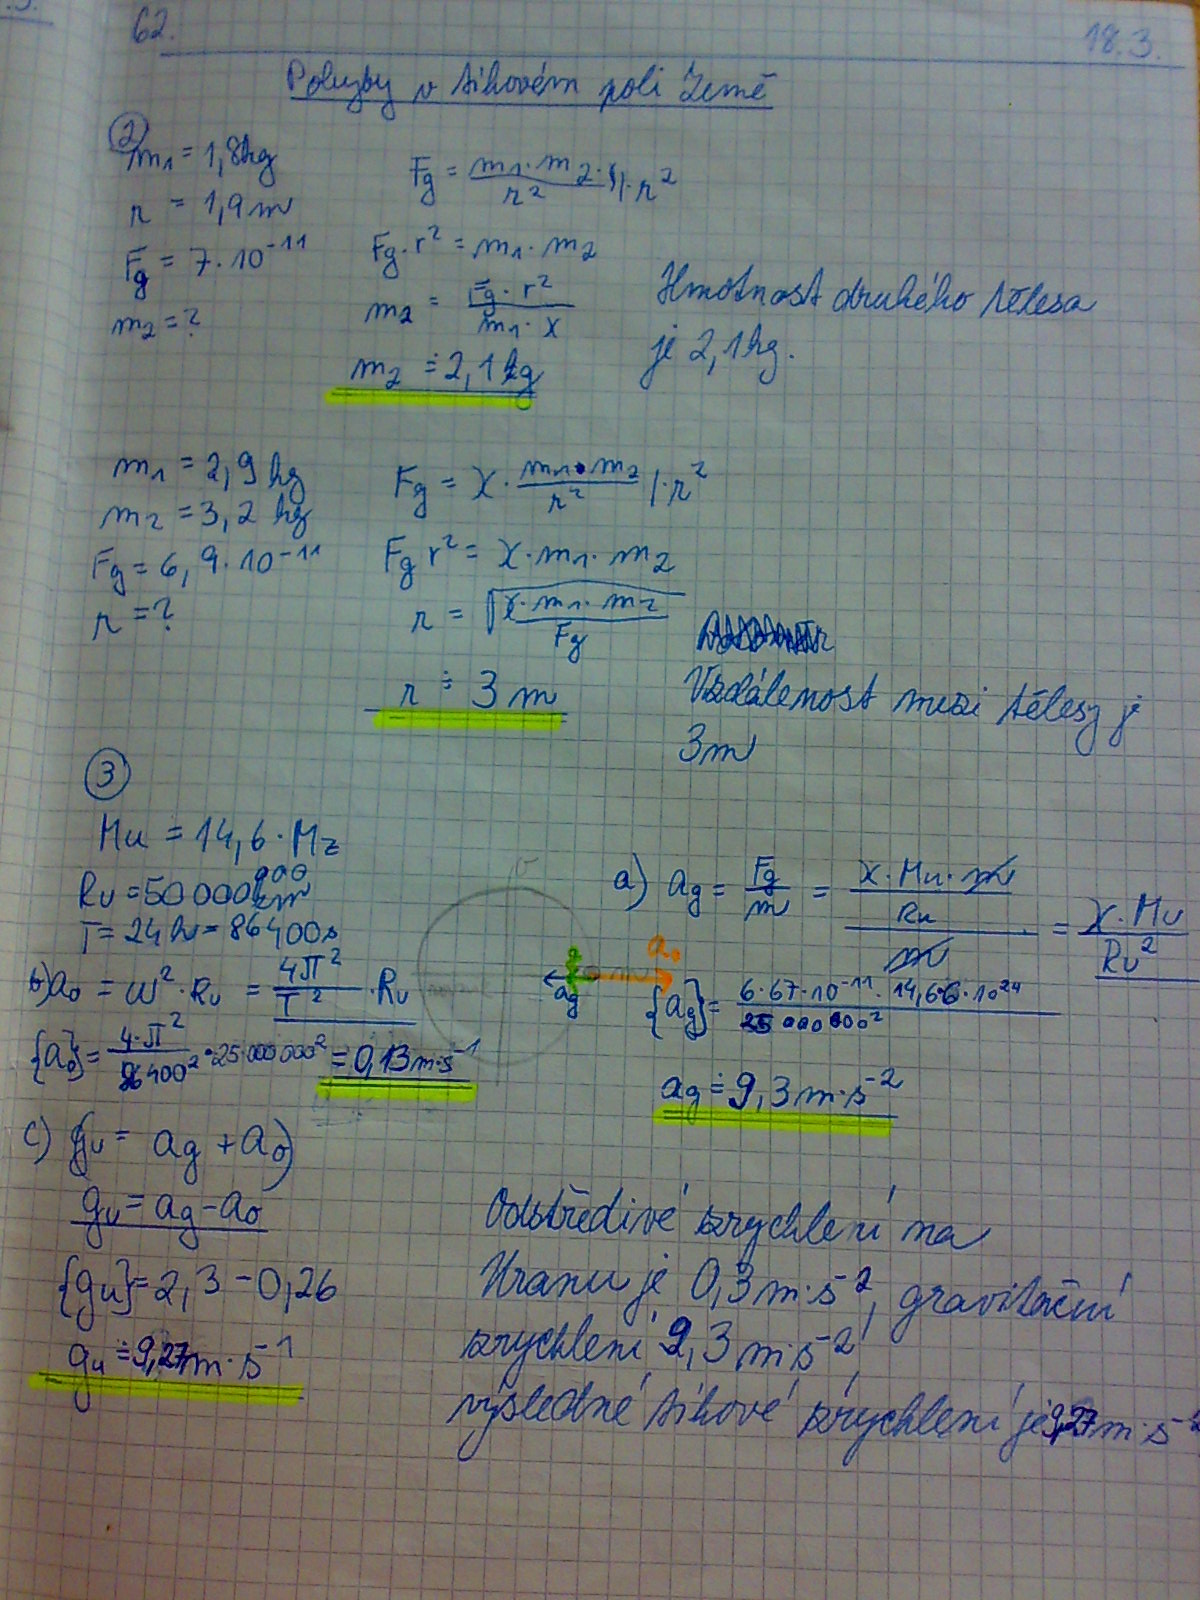 62.
18.3.
Pohyby v tíhovém poli Země
②
m₁ = 1,8kg
r = 1,9m
Fg = 7·10⁻¹¹
m₂ = ?
Fg = m₁·m₂·/r² /·r²
Fg·r² = m₁·m₂
m₂ = Fg·r²/m₁·ϰ
m₂ ≐ 2,1kg
Hmotnost druhého tělesa
je 2,1kg.
m₁ = 2,9kg
m₂ = 3,2kg
Fg = 6,9·10⁻¹¹
r = ?
Fg = ϰ·m₁·m₂/r² /·r²
Fg r² = ϰ·m₁·m₂
r = √ϰ·m₁·m₂/Fg
r ≐ 3m
Vzdálenost mezi tělesy je
3m
③
Mu = 14,6·Mz
Ru = 50 000 000 m
T = 24h = 86400s
a) ag = Fg/m = ϰ·Mu·m/Ru/m = ϰ·Mu/Ru²
{ag} = 6·67·10⁻¹¹·14,6·6·10²⁴/25 000 000²
ag ≐ 9,3m·s⁻²
ag
a₀
b) a₀ = ω²·Ru = 4π²/T²·Ru
{a₀} = 4·π²/86400²·25·000 000² = 0,13m·s⁻¹
c) gu = ag + a₀
gu = ag - a₀
{gu} = 2,3 - 0,26
gu ≐ 9,27m·s⁻¹
Odstředivé zrychlení na
Uranu je 0,3m·s⁻², gravitační
zrychlení 9,3m·s⁻²
výsledné tíhové zrychlení je 9,27m·s⁻²